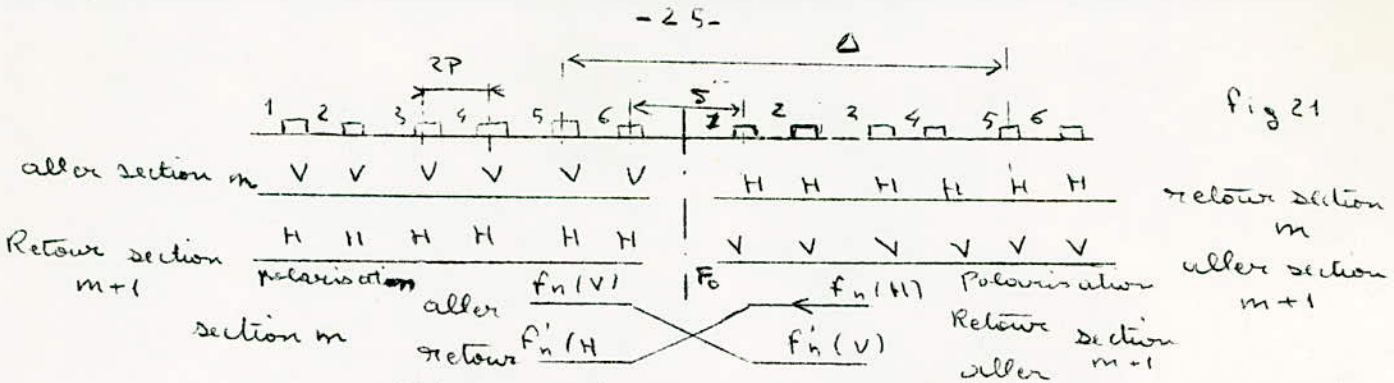 -25-
Δ
2P
S
1 2 3 4 5 6 1 2 3 4 5 6
fig 21
aller section m V V V V V V H H H H H H retour section m
Retour section m+1 H H H H H H V V V V V V aller section m+1
polarisation aller fn(V) F0 fn(H) Polarisation
section m retour f'n(H f'n(V) Retour section m+1
aller